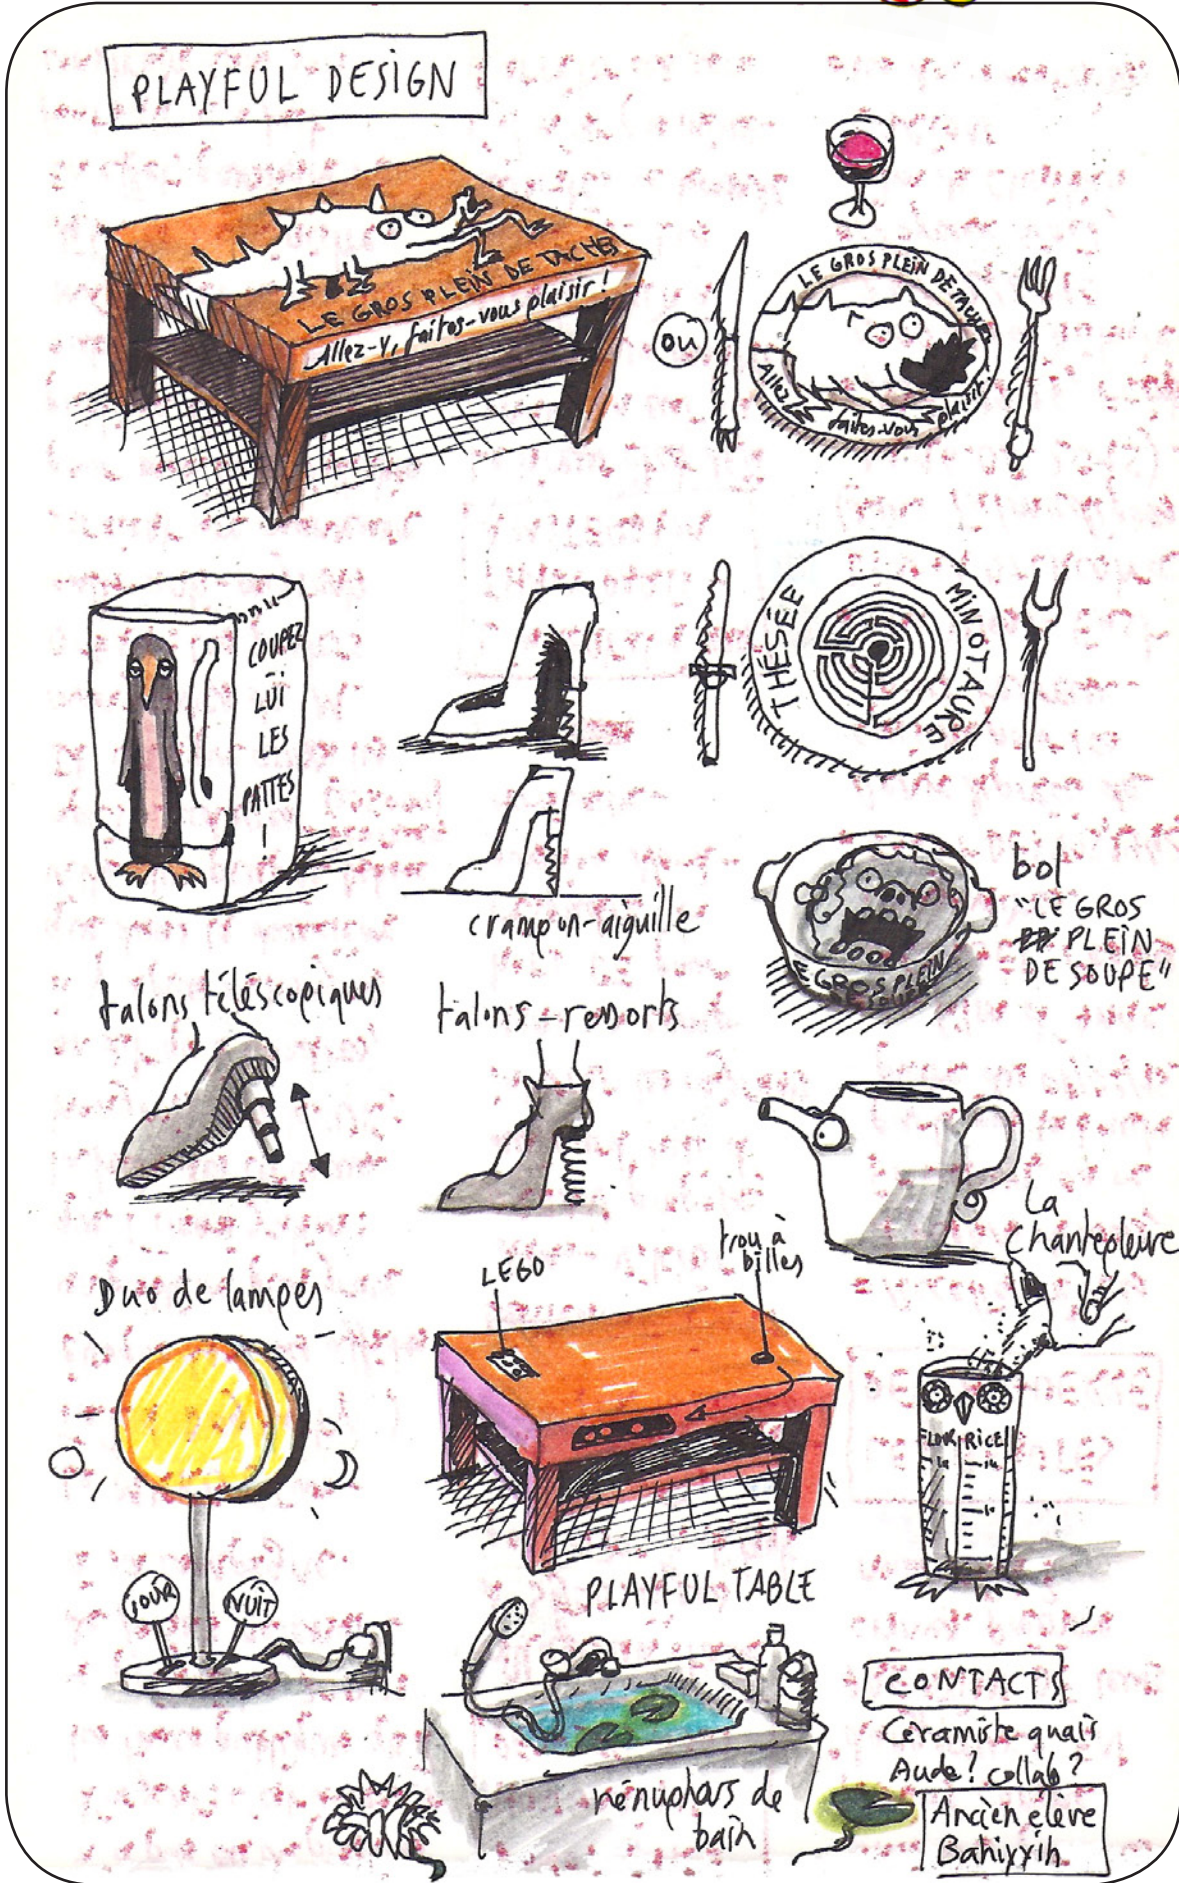 PLAYFUL DESIGN
LE GROS PLEIN DE TACHES
Allez-y, faites-vous plaisir !
OU
LE GROS PLEIN DE TACHES
Allez
faites-vous
plaisir
COUPEZ
LUI
LES
PATTES
!
THÉSÉE
MINOTAURE
crampon-aiguille
bol
"LE GROS
PLEIN
DE SOUPE"
LE GROS PLEIN
DE SOUPE
talons téléscopiques
talons-ressorts
La
Chantepleure
Duo de lampes
LEGO
trou à
billes
FLOUR
RICE
JOUR
NUIT
PLAYFUL TABLE
nénuphars de
bain
CONTACTS
Céramiste quais
Aude? collab?
Ancien élève
Bahiyyih